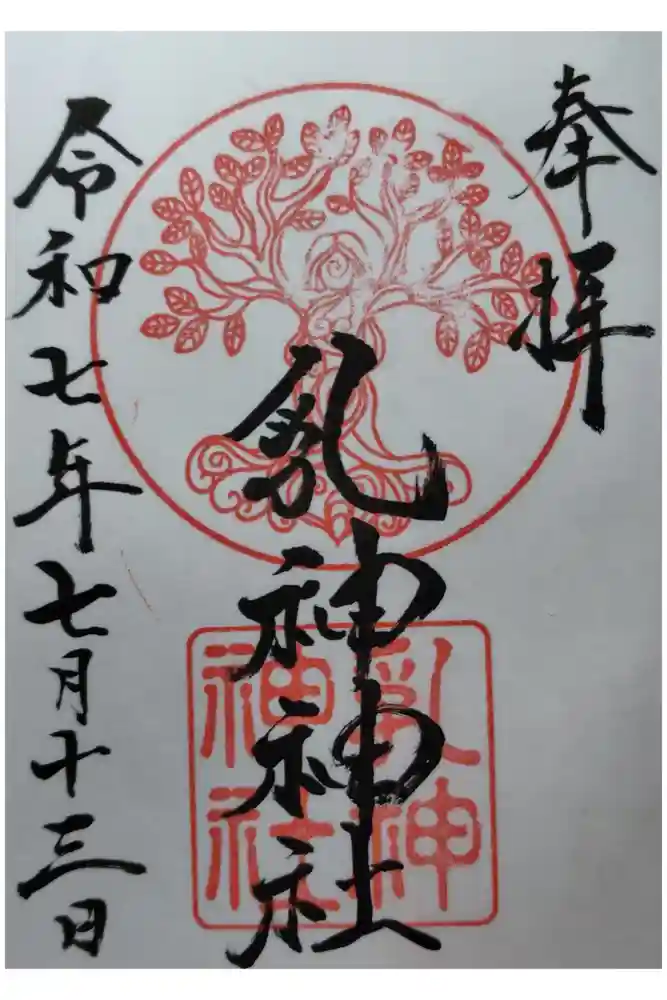 奉拝
乳神神社
乳神
神社
令和七年七月十三日